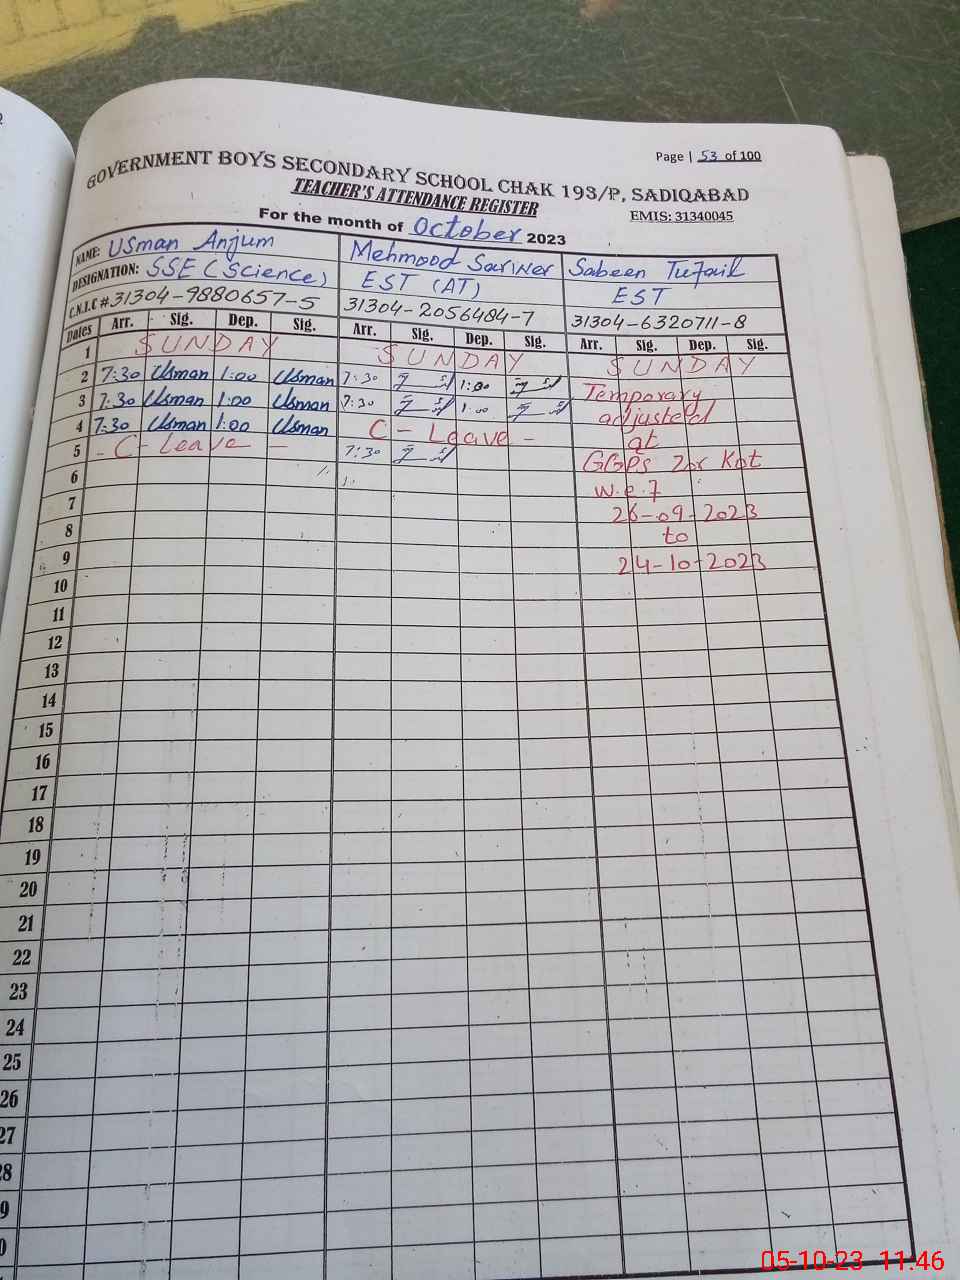 Page | 53 of 100
GOVERNMENT BOYS SECONDARY SCHOOL CHAK 193/P, SADIQABAD
TEACHER'S ATTENDANCE REGISTER
EMIS: 31340045
For the month of October 2023
NAME: Usman Anjum Mehmood Sarwer Sabeen Tufail
DESIGNATION: SSE (Science) EST (AT) EST
C.N.I.C # 31304-9880657-5 31304-2056484-7 31304-6320711-8
Dates Arr. Sig. Dep. Sig. Arr. Sig. Dep. Sig. Arr. Sig. Dep. Sig.
1 SUNDAY SUNDAY SUNDAY
2 7:30 Usman 1:00 Usman 7:30 1:00 Temporary
3 7:30 Usman 1:00 Usman 7:30 1:00 adjusted
4 7:30 Usman 1:00 Usman C - Leave - at
5 - C - Leave - 7:30 GGPS Kot
6 w.e.f
7 26-09-2023
8 to
9 24-10-2023
10
11
12
13
14
15
16
17
18
19
20
21
22
23
24
25
26
27
28
9
0
05-10-23 11:46